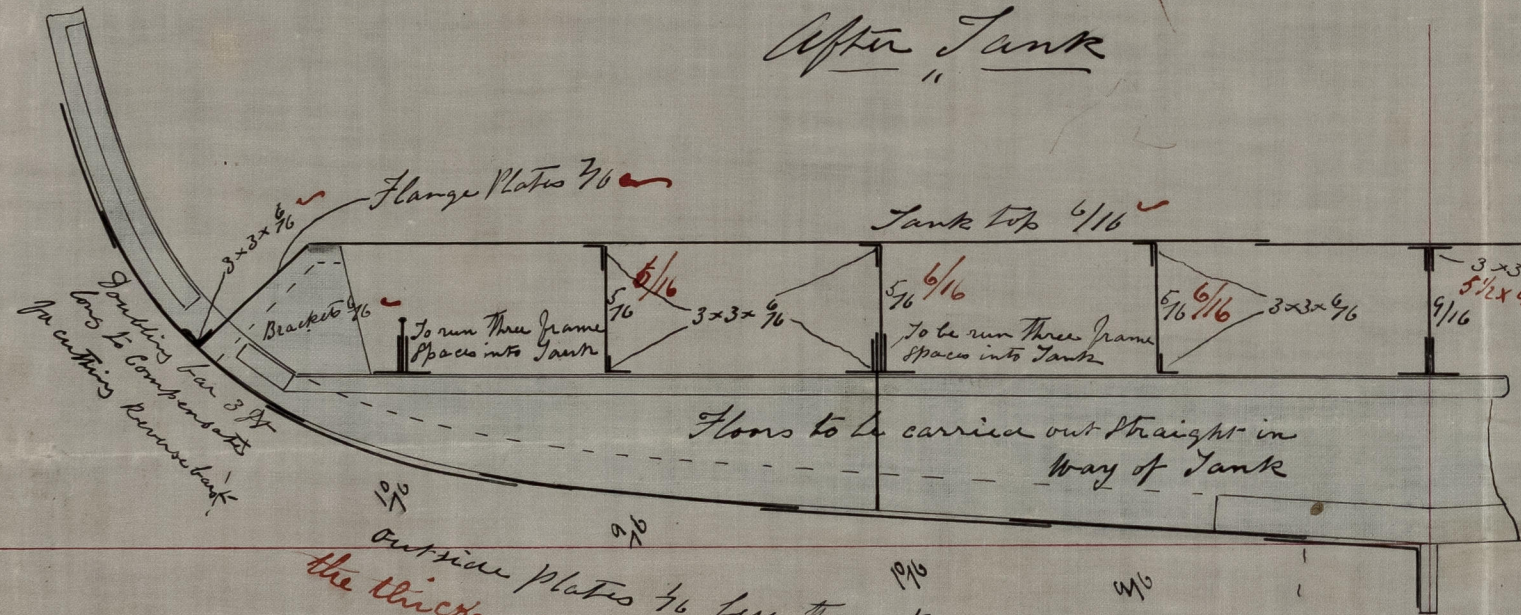 After Tank
"
Flange Plates 7/16
3 x 3 x 6/16
Tank top 6/16
Brackets 6/16
To run three frame
Spaces into Tank
5/16 6/16
3 x 3 x 6/16
5/16 6/16
To be run three frame
Spaces into Tank
5/16 6/16
3 x 3 x 6/16
9/16
3 x 3
5 1/2 x
Doubling bar 3 ft
long to Compensate
for cutting Reverse bar
Floors to be carried out Straight in
Way of Tank
10/16
9/16
10/16
9/16
outside Plates 1/16 less
the thick